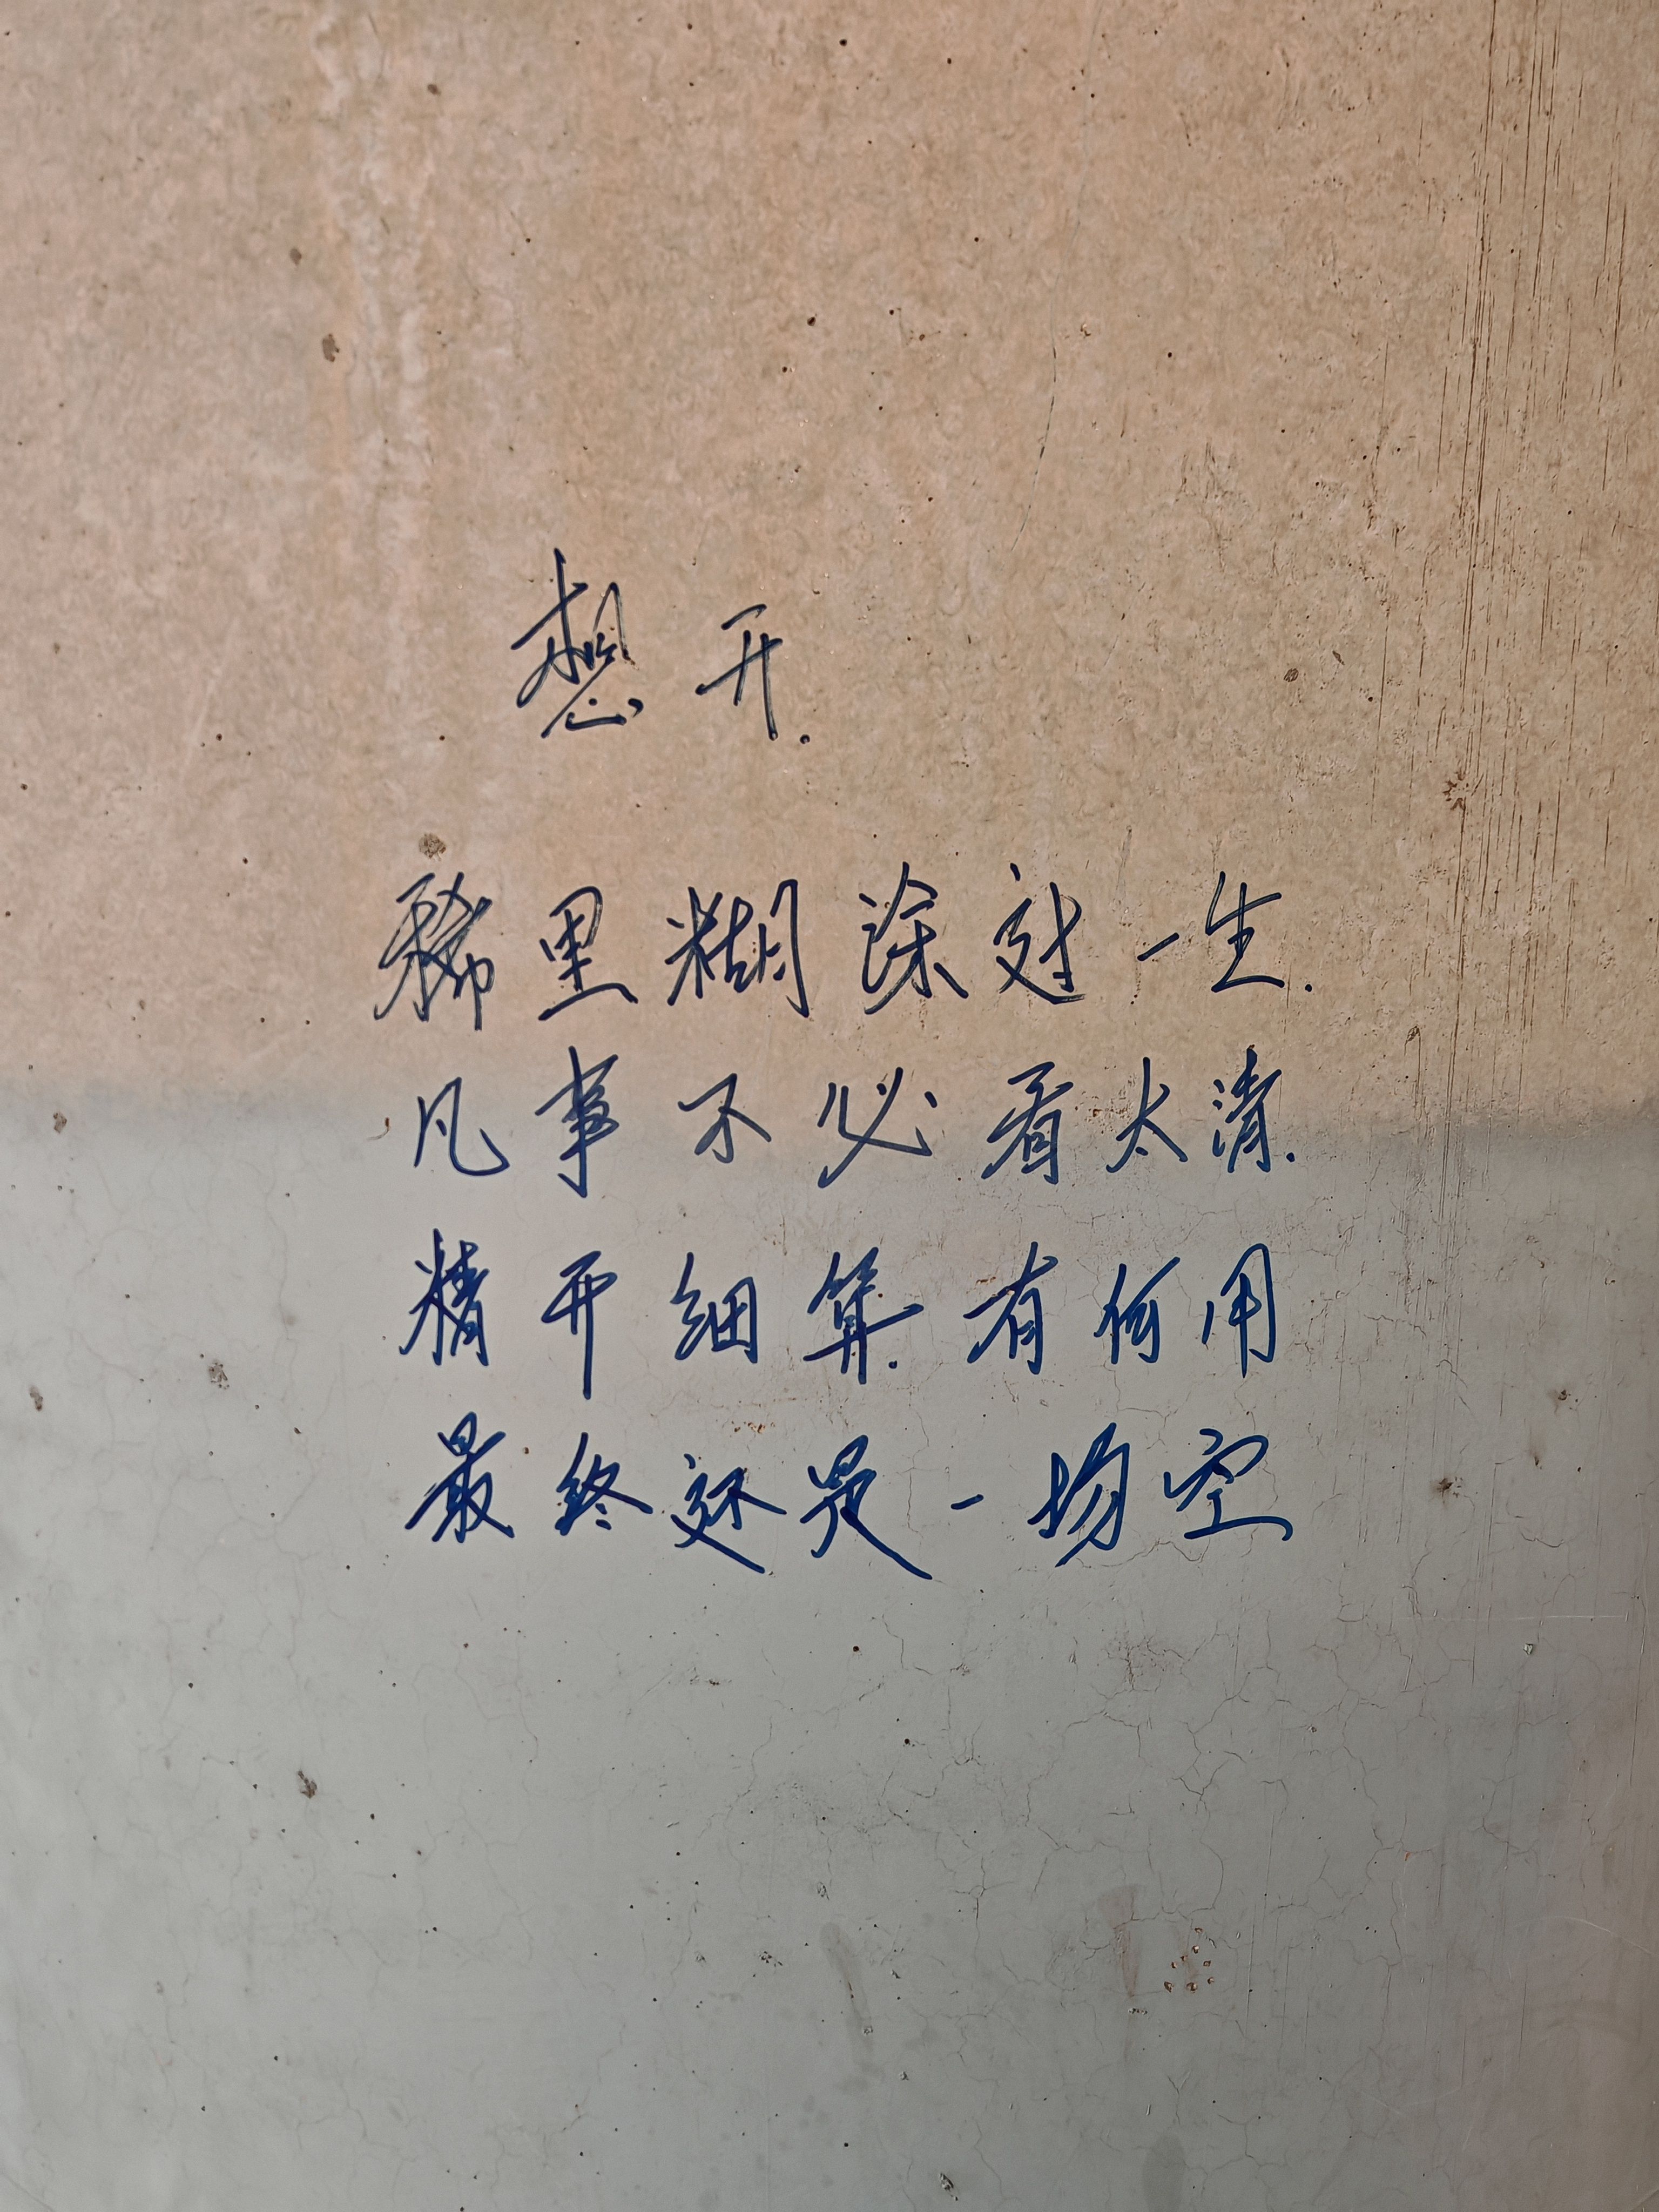 想开.
稀里糊涂过一生.
凡事不必看太清.
精开细算.有何用
最终还是一场空